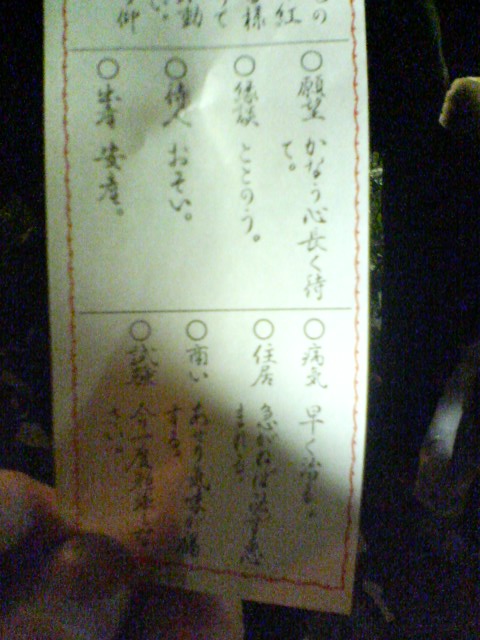 ○願望 かなう心長く待
て。
○縁談 ととのう。
○待人 おそい。
○出産 安産。
○病気 早く治る。
○住居 急がねば必ず恵
まれる。
○商い あせり気味が禍
する。
○試験 今一度頑張りな
さい。